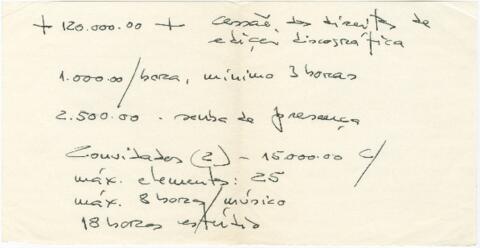 + 120.000.00 + cessão dos direitos de
edição discográfica
1.000.00/hora, mínimo 3 horas
2.500.00 - senha de presença
Convidados (2) - 15.000.00 c/
máx. elementos: 25
máx. 8 horas/músico
18 horas estúdio